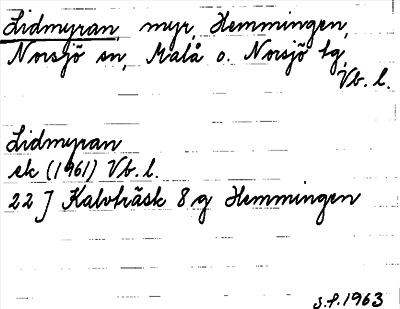 Lidmyran, myr, Hemmingen,
Norsjö sn, Malå o. Norsjö tg,
Vb. l.
Lidmyran
ek (1961) Vb. l.
22 J Kalvträsk 8 g Hemmingen
S.f. 1963